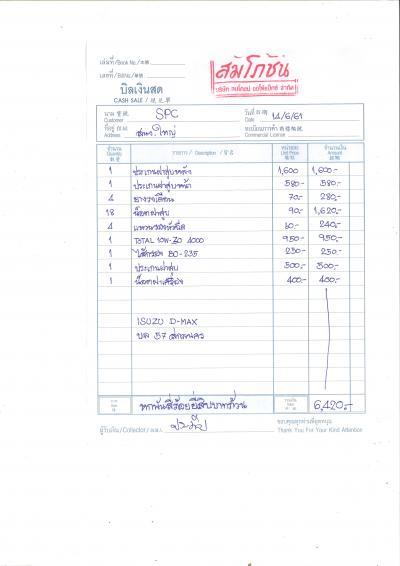 เล่มที่/Book No./本號
เลขที่/Bill No./號碼
สัมโภชัน
บิลเงินสด
CASH SALE / 現兌單
นาม Customer SPC วันที่ Date 14/6/61
ที่อยู่ Address สนง.ใหญ่ ทะเบียนการค้า Commercial License
จำนวน Quantity รายการ / Description หน่วยละ Unit Price จำนวนเงิน Amount
1 ประเกนฝาสูบหลัง 1,600 1,600.-
1 ประเกนฝาสูบหน้า 580- 580.-
4 ยางรองเตือน 70.- 280.-
18 น๊อตฝาสูบ 90.- 1,620.-
4 แหวนรองหัวฉีด 60.- 240.-
1 TOTAL 10W-30 4000 950.- 950.-
1 ไส้กรอง 80-235 250.- 250.-
1 ประเกนฝาสูบ 500.- 500.-
1 น๊อตฝาเครื่อง 400.- 400.-
ISUZU D-MAX
บล 57 สกลนคร
บาท Baht หกพันสี่ร้อยยี่สิบบาทถ้วน รวมเงิน Total 6,420.-
ผู้รับเงิน/Collector/收款人 ขอบคุณทุกท่านที่อุดหนุน
Thank You For Your Kind Attention